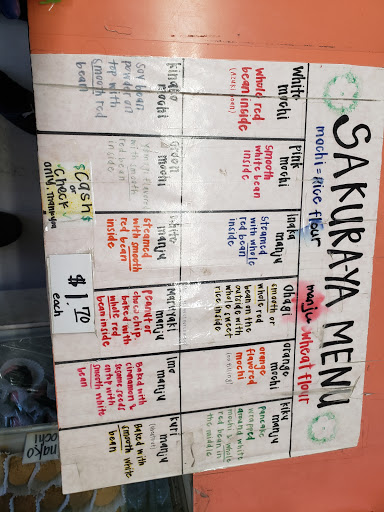 SAKURA-YA MENU
mochi = rice flour
manju = wheat flour
white
mochi
whole red
bean inside
(Azuki bean)
pink
mochi
smooth
white bean
inside
inaka
manju
steamed
with whole
red bean
inside
Ohagi
smooth or
whole red
bean on the
outside with
whole sweet
rice inside
orange
mochi
orange
flavored
mochi
(no filling)
kiku
manju
pancake
wrapped
around white
mochi & whole
red bean in
the middle
kinako
mochi
soy bean
powder on
top with
smooth red
bean
mochi
with smooth
red bean
inside
shiro
manju
steamed
with smooth
red bean
inside
manju
peanut or
choco chip
baked with
whole red
bean inside
imo
manju
Baked with
cinnamon &
sesame seeds
on top with
smooth white
bean
kuri
manju
Baked with
smooth white
bean
$Cash$
or
check✓
only. Thank you
$1.70
each
nako
ochi